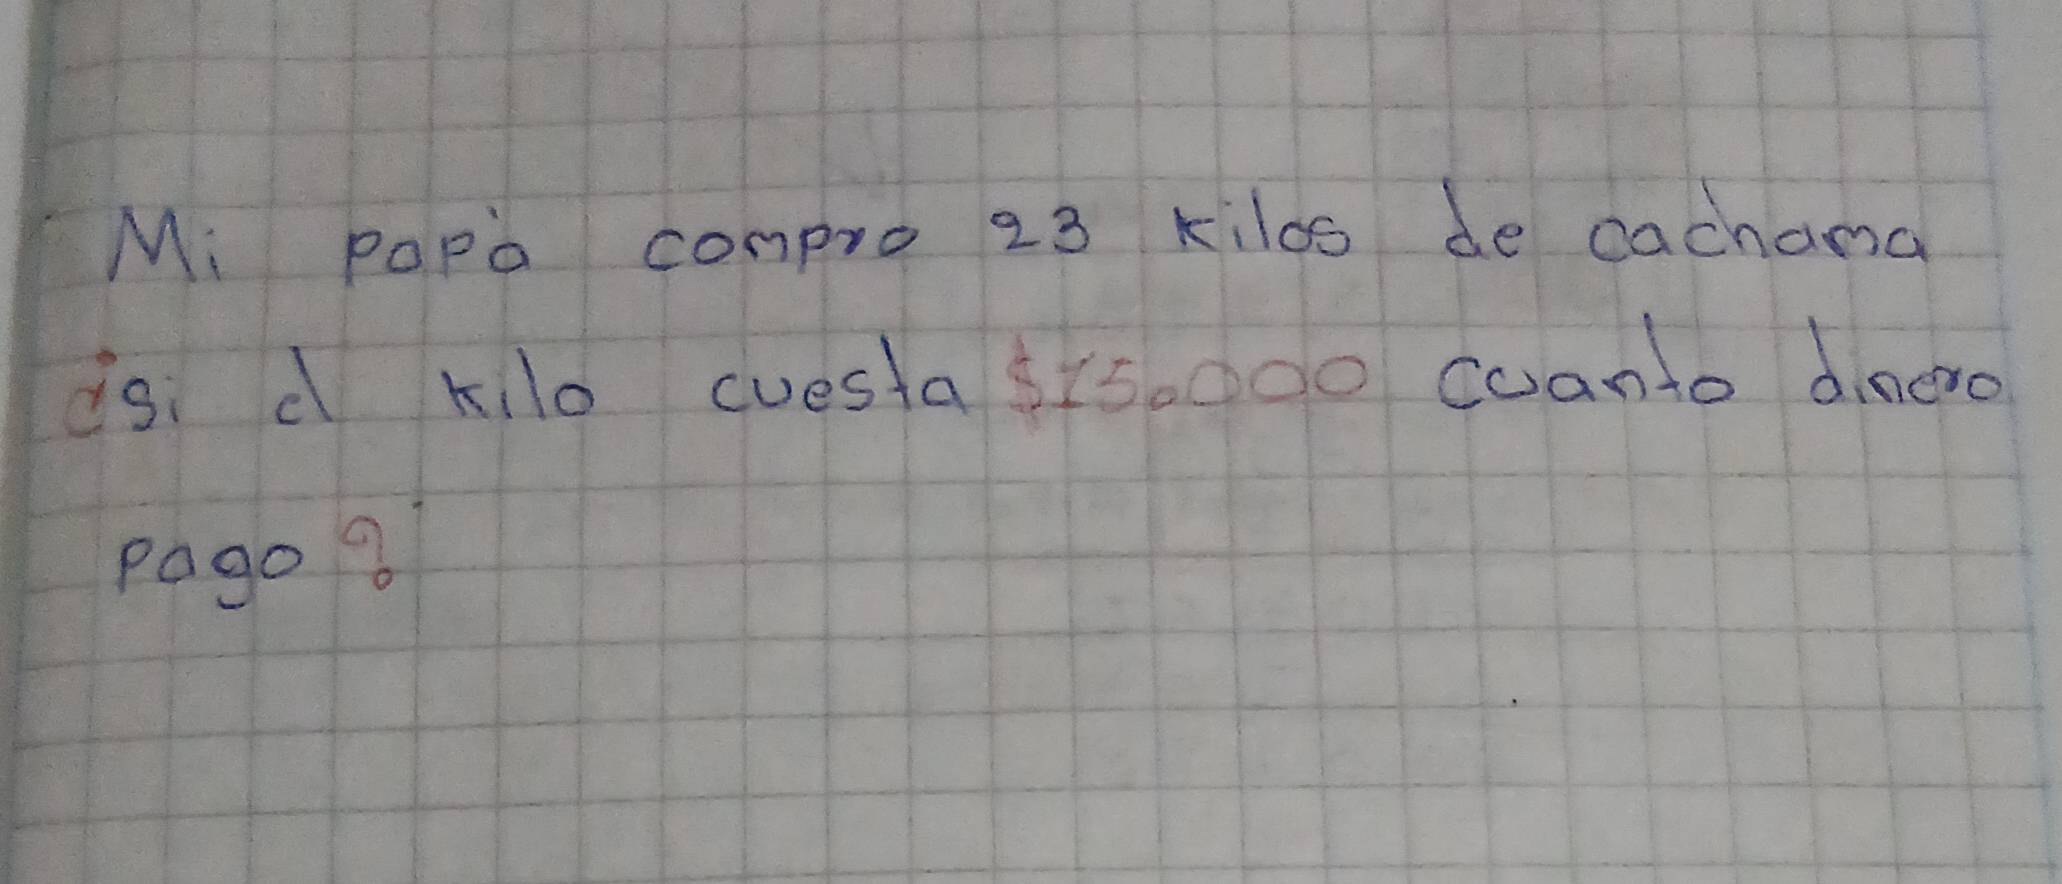 Mi papà compro 23 kilos de cachama
¿si el kilo cuesta $15.000 cuanto dinero
pago?